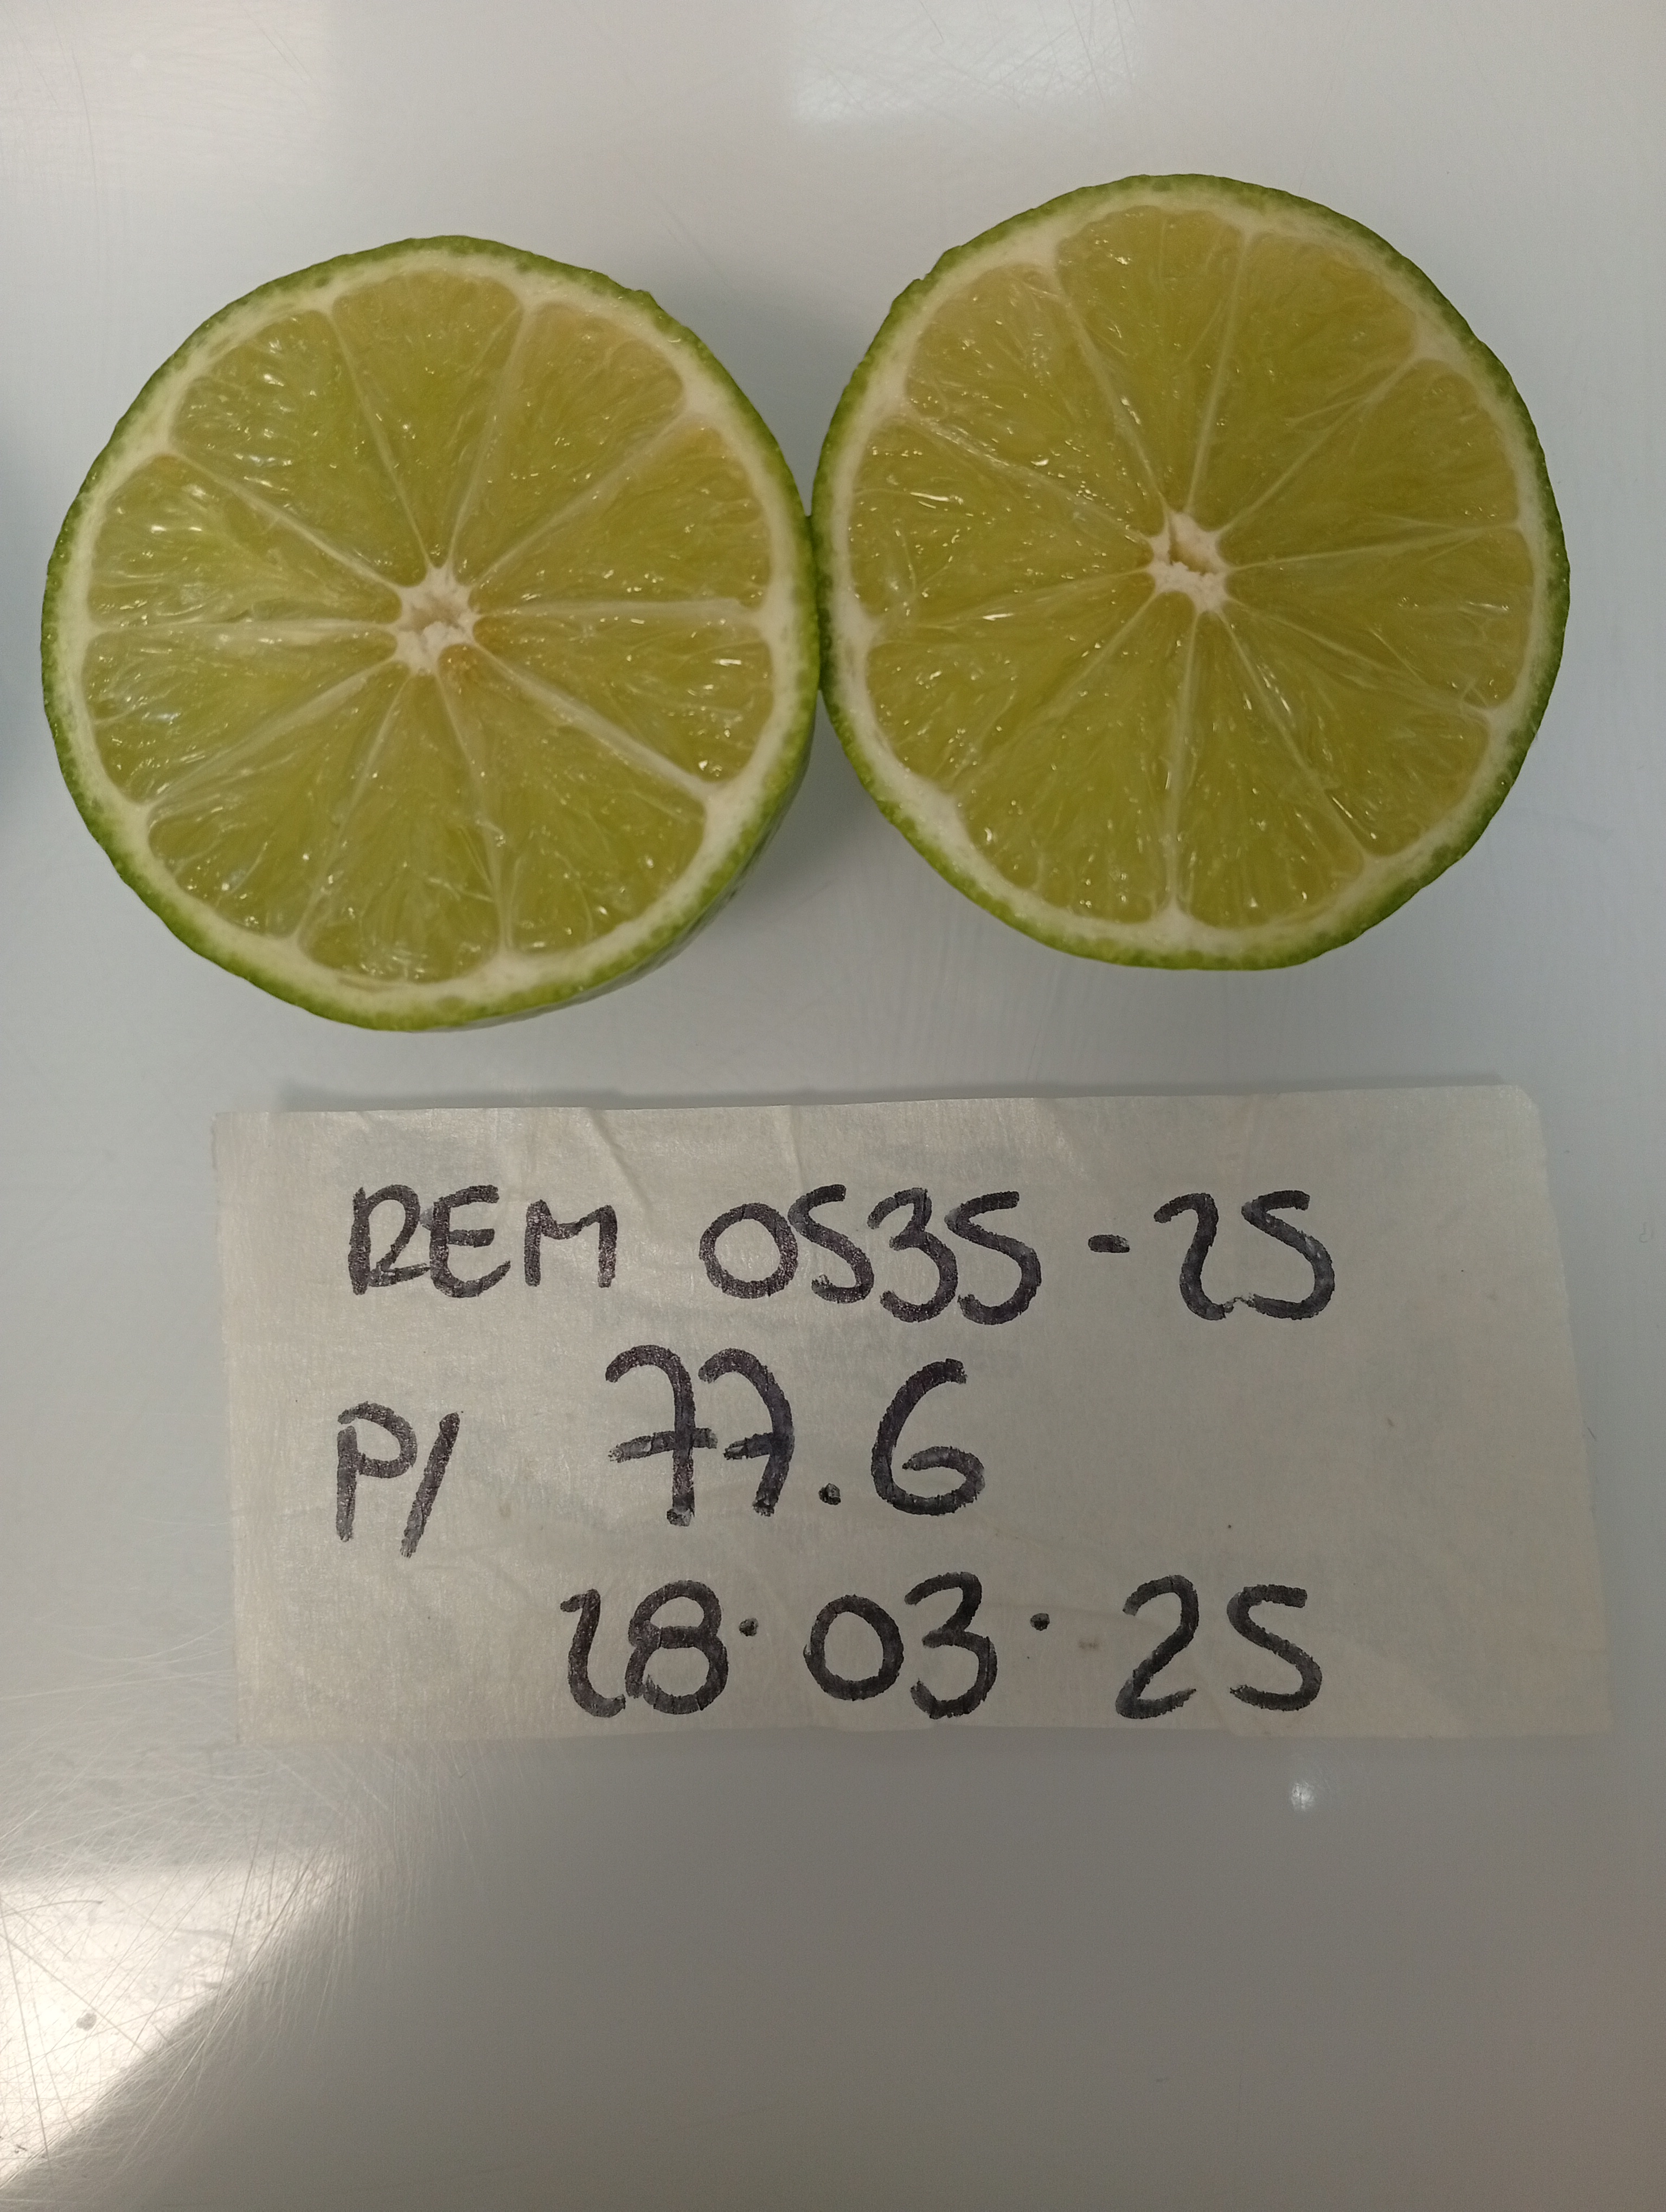 REM 0535-25
P/ 77.6
28.03.25